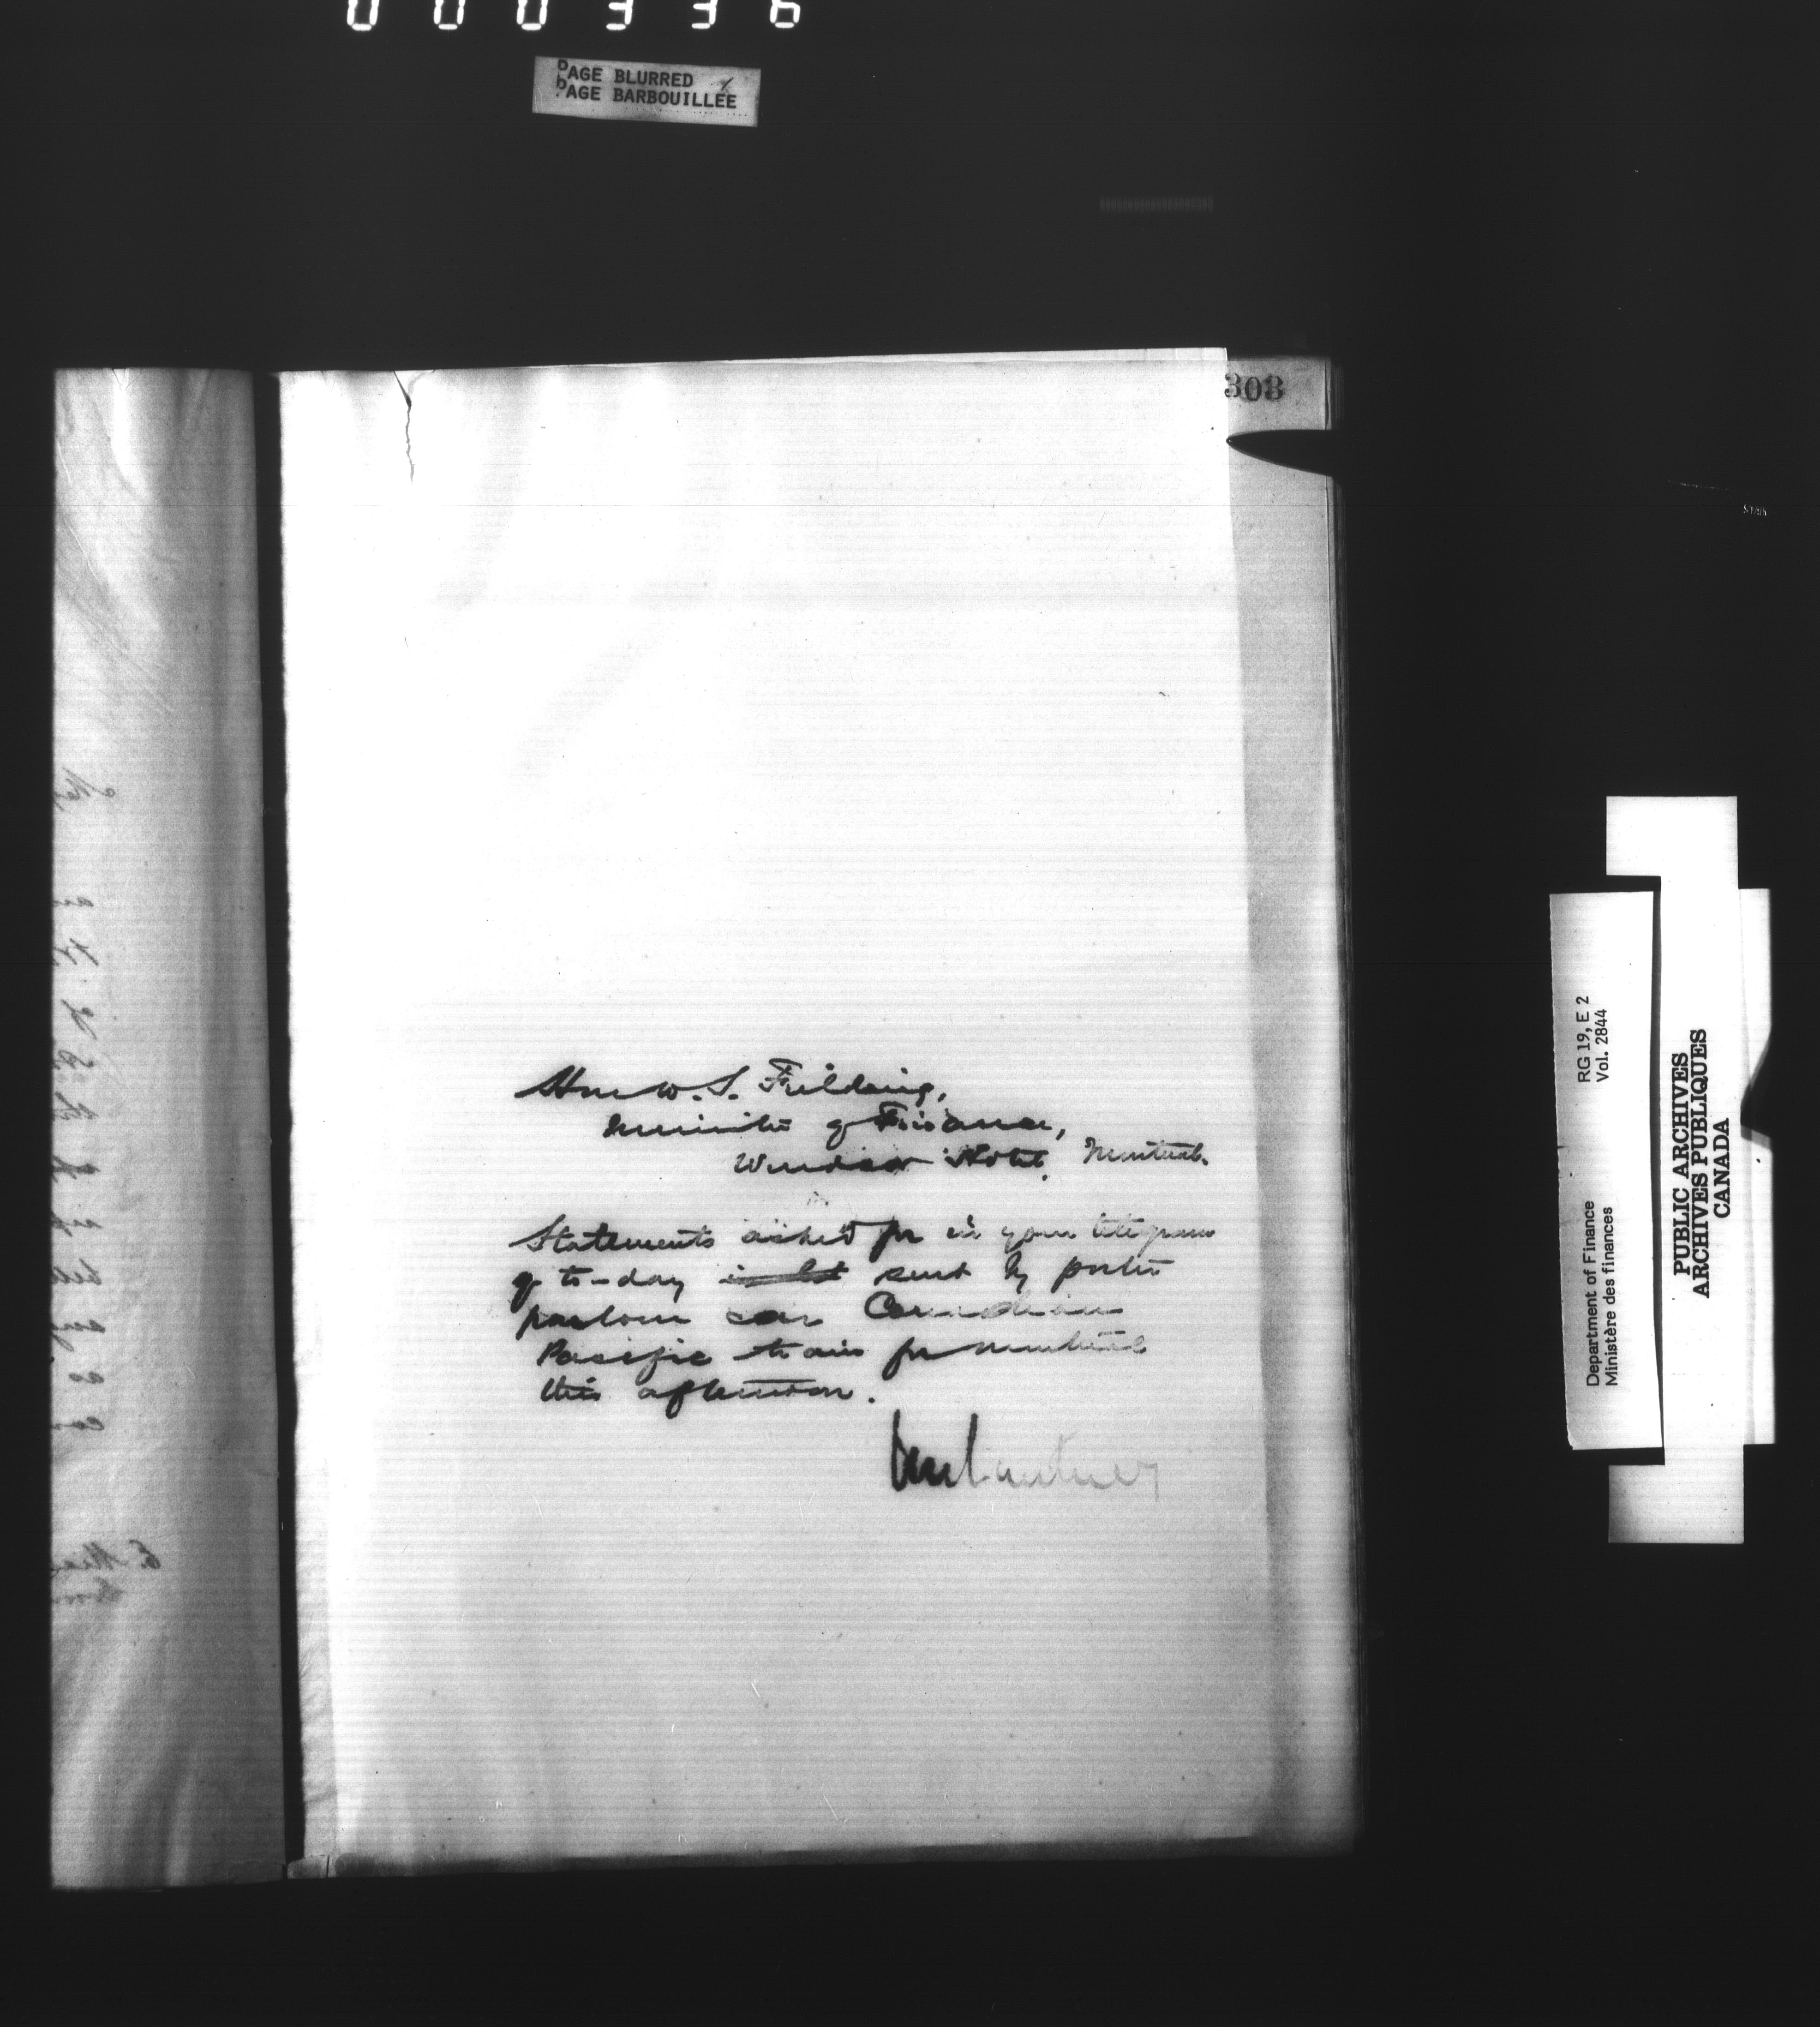 000336
PAGE BLURRED
PAGE BARBOUILLÉE
303
Hon W. S. Fielding,
Minister of Finance,
Windsor Hotel, Montreal.
Statements asked for in your telegram
of to-day sent by porter
parlour car Canadian
Pacific train for Montreal
this afternoon.
RG 19, E 2
Vol. 2844
Department of Finance
Ministère des finances
PUBLIC ARCHIVES
ARCHIVES PUBLIQUES
CANADA